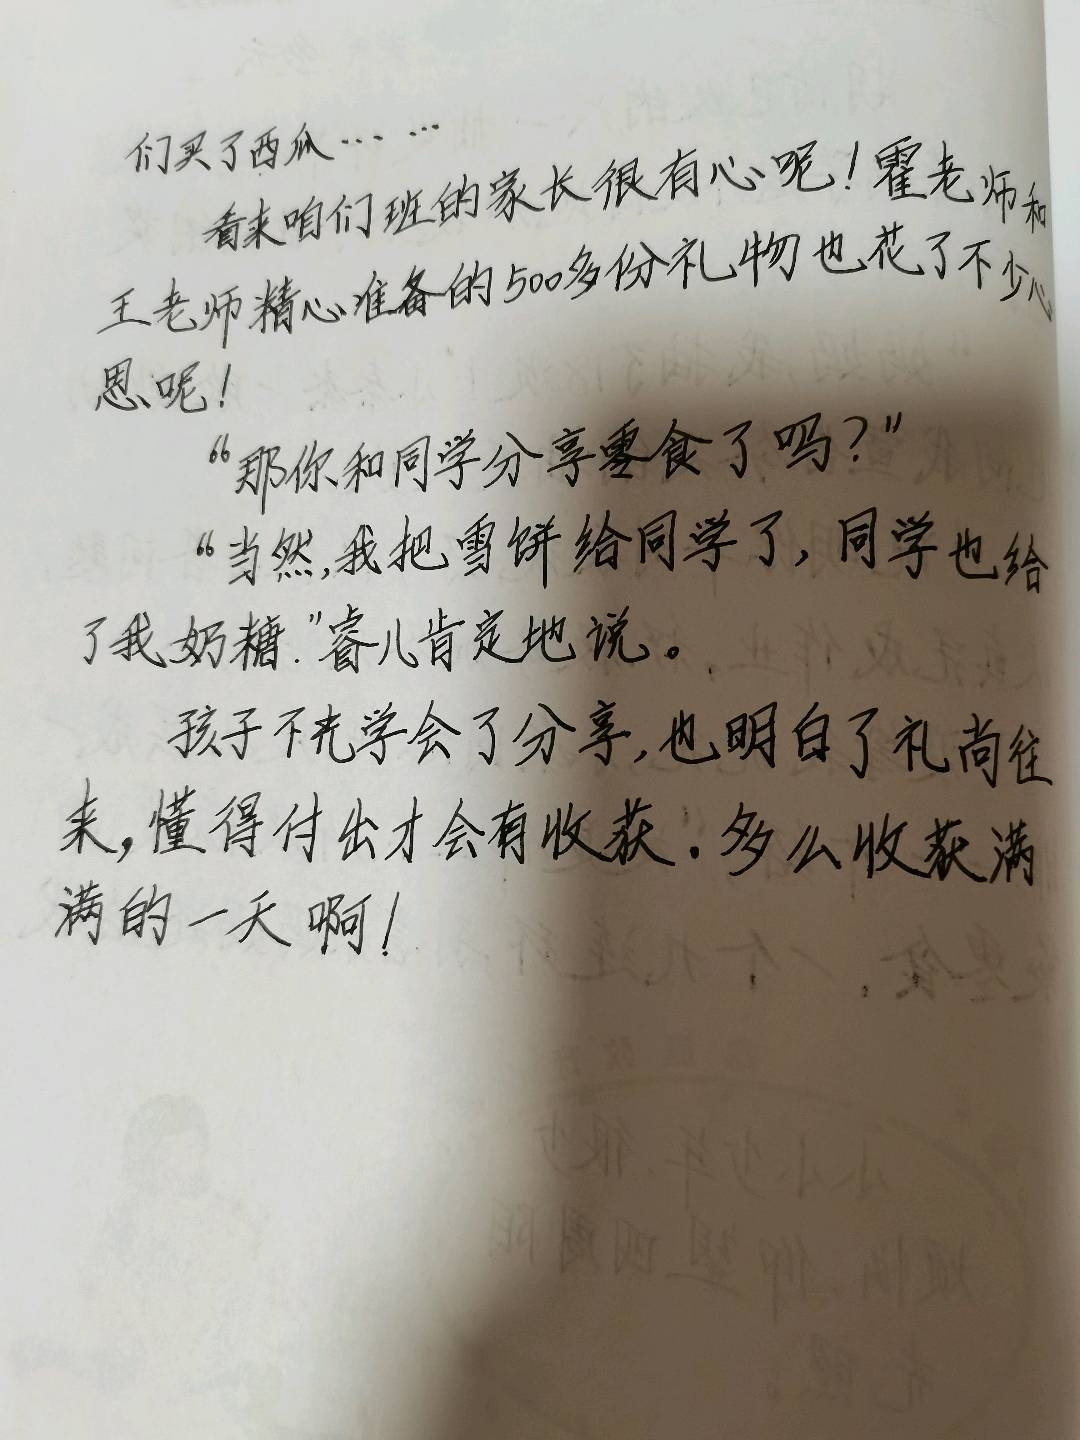 们买了西瓜……
看来咱们班的家长很有心呢！霍老师和
王老师精心准备的500多份礼物也花了不少心
思呢！
“那你和同学分享零食了吗？”
“当然,我把雪饼给同学了,同学也给
了我奶糖.”睿儿肯定地说。
孩子不光学会了分享,也明白了礼尚往
来,懂得付出才会有收获.多么收获满
满的一天啊！